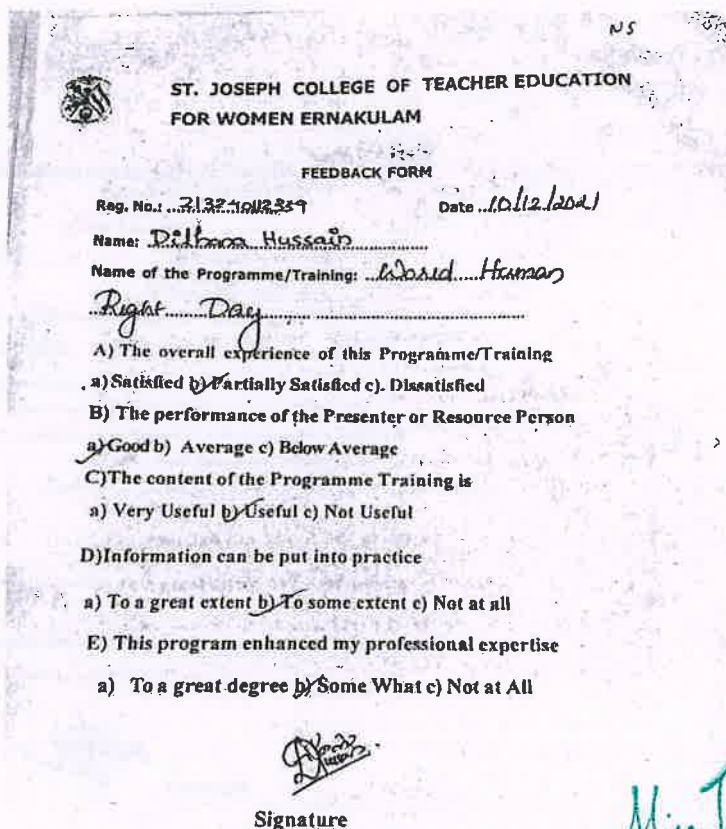 NS
ST. JOSEPH COLLEGE OF TEACHER EDUCATION
FOR WOMEN ERNAKULAM
FEEDBACK FORM
Reg. No.: Date 10/12/2021
Name: Hussain
Name of the Programme/Training: World Human
Right Day
A) The overall experience of this Programme/Training
a) Satisfied b) Partially Satisfied c). Dissatisfied
B) The performance of the Presenter or Resource Person
a) Good b) Average c) Below Average
C)The content of the Programme Training is
a) Very Useful b) Useful c) Not Useful
D)Information can be put into practice
a) To a great extent b) To some extent c) Not at all
E) This program enhanced my professional expertise
a) To a great degree b) Some What c) Not at All
Signature